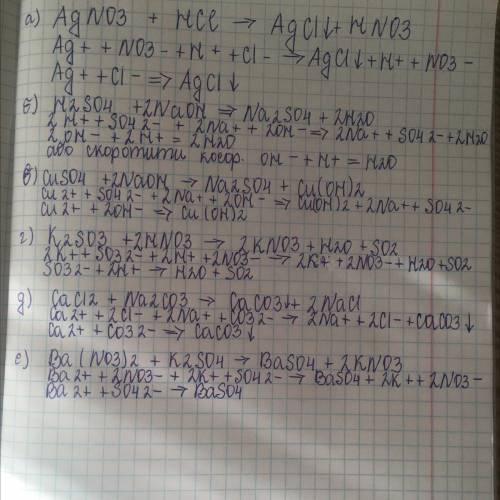 а) AgNO3 + HCl → AgCl↓ + HNO3
Ag+ + NO3- + H+ + Cl- → AgCl↓ + H+ + NO3-
Ag+ + Cl- => AgCl↓
б) H2SO4 + 2NaOH => Na2SO4 + 2H2O
2H+ + SO42- + 2Na+ + 2OH- => 2Na+ + SO42- + 2H2O
2OH- + 2H+ = 2H2O
або скоротити коєф. OH- + H+ = H2O
в) CuSO4 + 2NaOH → Na2SO4 + Cu(OH)2
Cu2+ + SO42- + 2Na+ + 2OH- => Cu(OH)2 + 2Na+ + SO42-
Cu2+ + 2OH- => Cu(OH)2
г) K2SO3 + 2HNO3 → 2KNO3 + H2O + SO2
2K+ + SO32- + 2H+ + 2NO3- → 2K+ + 2NO3- + H2O + SO2
SO32- + 2H+ → H2O + SO2
д) CaCl2 + Na2CO3 → CaCO3↓ + 2NaCl
Ca2+ + 2Cl- + 2Na+ + CO32- → 2Na+ + 2Cl- + CaCO3↓
Ca2+ + CO32- => CaCO3↓
е) Ba(NO3)2 + K2SO4 → BaSO4 + 2KNO3
Ba2+ + 2NO3- + 2K+ + SO42- → BaSO4 + 2K+ + 2NO3-
Ba2+ + SO42- → BaSO4